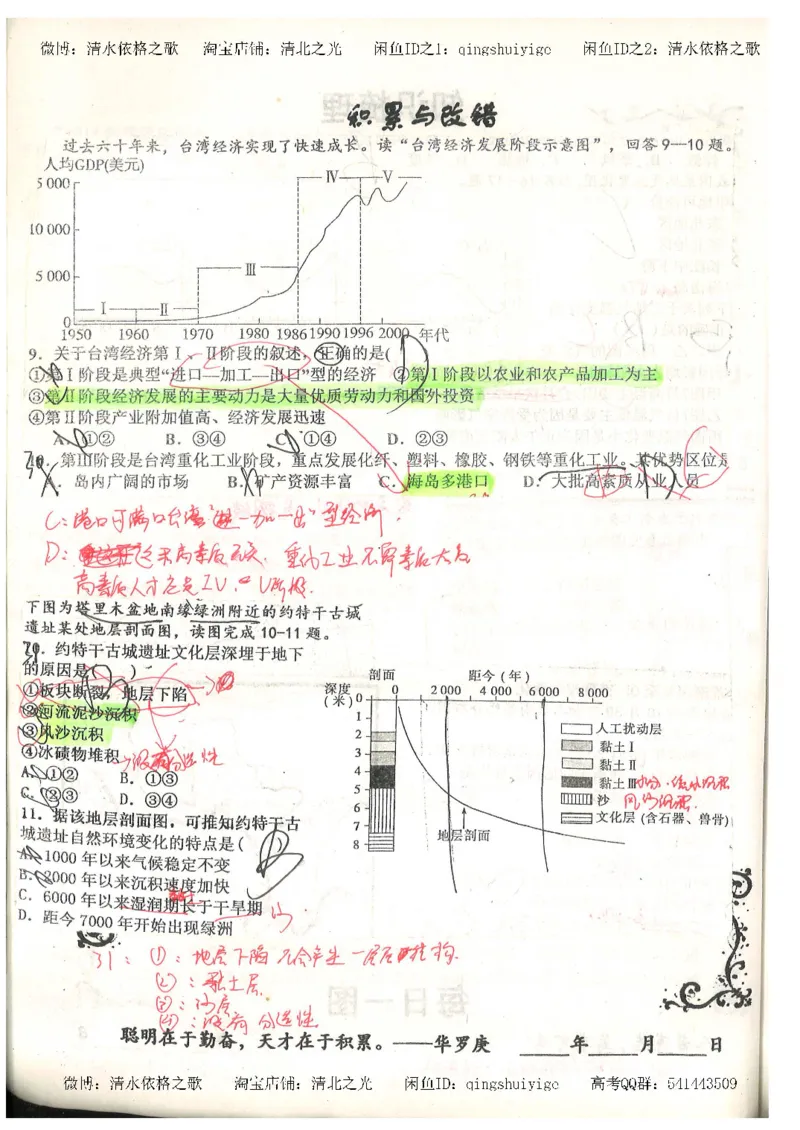 微博：清水依格之歌 淘宝店铺：清北之光 闲鱼ID之1：qingshuiyige 闲鱼ID之2：清水依格之歌
积累与改错
过去六十年来，台湾经济实现了快速成长。读“台湾经济发展阶段示意图”，回答9—10题。
人均GDP(美元)
5 000
10 000
5 000
0
Ⅰ Ⅱ Ⅲ Ⅳ Ⅴ
1950 1960 1970 1980 1986 1990 1996 2000 年代
9．关于台湾经济第Ⅰ、Ⅱ阶段的叙述，正确的是(
①第Ⅰ阶段是典型“进口—加工—出口”型的经济 ②第Ⅰ阶段以农业和农产品加工为主
③第Ⅱ阶段经济发展的主要动力是大量优质劳动力和国外投资
④第Ⅱ阶段产业附加值高、经济发展迅速
A．①② B．③④ C．①④ D．②③
第Ⅲ阶段是台湾重化工业阶段，重点发展化纤、塑料、橡胶、钢铁等重化工业。其优势区位是
A．岛内广阔的市场 B．矿产资源丰富 C．海岛多港口 D．大批高素质从业人员
C：港口可
D：
下图为塔里木盆地南缘绿洲附近的约特干古城
遗址某处地层剖面图，读图完成10-11题。
10．约特干古城遗址文化层深埋于地下
的原因是( )
①板块断裂，地层下陷
②河流泥沙沉积
③风沙沉积
④冰碛物堆积 没有分选性
A．①② B．①③
C．②③ D．③④
11．据该地层剖面图，可推知约特干古
城遗址自然环境变化的特点是(
A．1000年以来气候稳定不变
B．2000年以来沉积速度加快
C．6000年以来湿润期长于干旱期
D．距今7000年开始出现绿洲
剖面 距今（年）
深度(米) 0 2 000 4 000 6 000 8 000
0
1
2
3
4
5
6
7
8
地层剖面
人工扰动层
黏土Ⅰ
黏土Ⅱ
黏土Ⅲ
沙 风沙沉积.
文化层（含石器、兽骨）
31：①：地层下陷不会产生一层层堆积.
②：黏土层
③：沙层
④：没有分选性.
聪明在于勤奋，天才在于积累。——华罗庚 ____年____月____日
微博：清水依格之歌 淘宝店铺：清北之光 闲鱼ID：qingshuiyige 高考QQ群：541443509